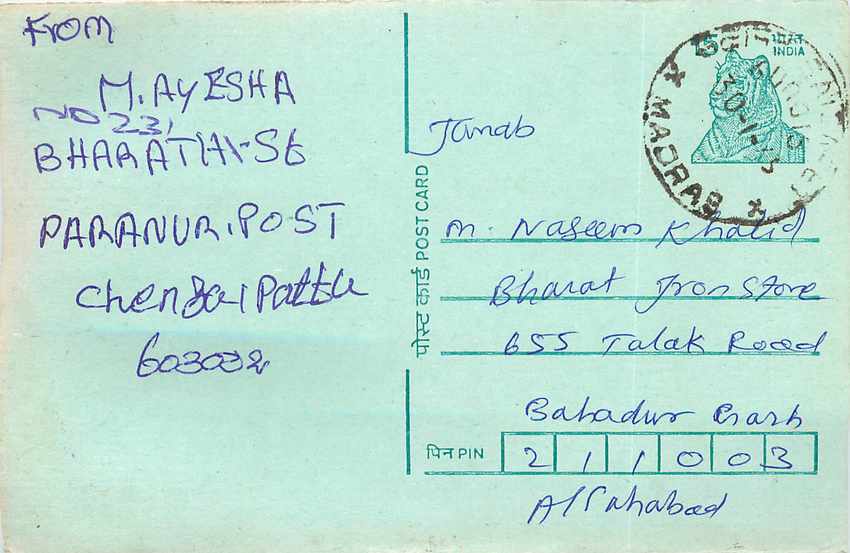 From
M. AYESHA
NO 231
BHARATHI-St
PARANUR. POST
Chengalpattu
603002
पोस्ट कार्ड POST CARD
15 भारत
INDIA
MADRAS
Janab
M. Naseem Khalid
Bharat Iron Store
655 Talak Road
Bahadur Garh
पिन PIN 211003
Allahabad